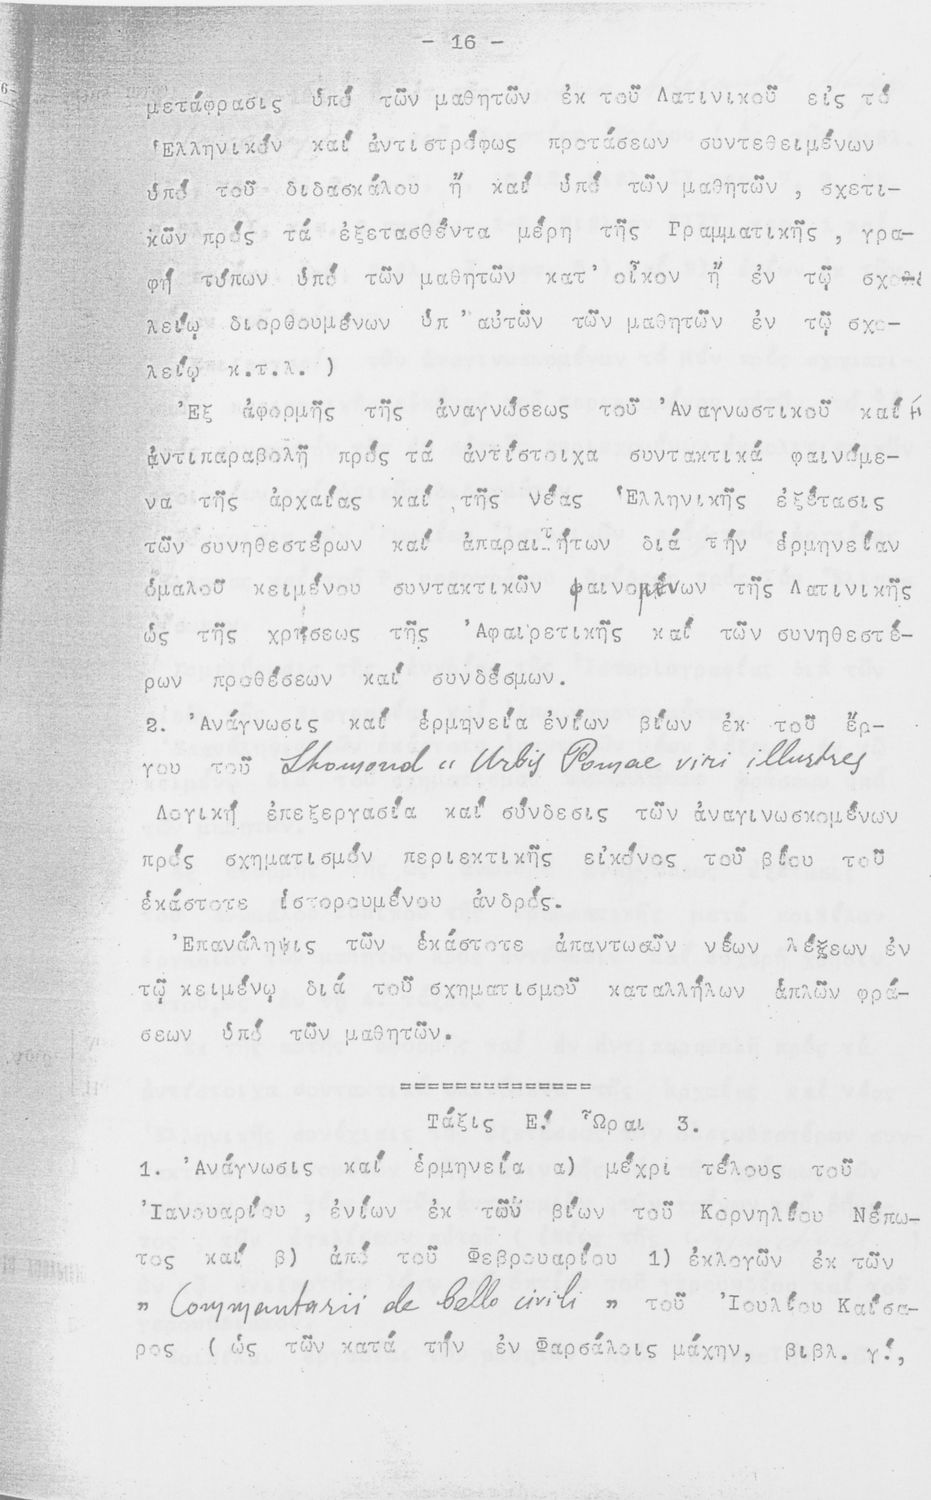 - 16 -
μετάφρασις ὑπό τῶν μαθητῶν ἐκ τοῦ Λατινικοῦ εἰς τό
Ἑλληνικόν καί ἀντιστρόφως προτάσεων συντεθειμένων
ὑπό τοῦ διδασκάλου ἤ καί ὑπό τῶν μαθητῶν , σχετι-
κῶν πρός τά ἐξετασθέντα μέρη τῆς Γραμματικῆς , γρα-
φή τύπων ὑπό τῶν μαθητῶν κατ' οἶκον ἤ ἐν τῷ
λείῳ διορθουμένων ὑπ' αὐτῶν τῶν μαθητῶν ἐν τῷ σχο-
λείῳ κ.τ.λ. )
Ἐξ ἀφορμῆς τῆς ἀναγνώσεως τοῦ Ἀναγνωστικοῦ καί
ἀντιπαραβολῇ πρός τά ἀντίστοιχα συντακτικά φαινόμε-
να τῆς ἀρχαίας καί τῆς νέας Ἑλληνικῆς ἐξέτασις
τῶν συνηθεστέρων καί ἀπαραιτήτων διά τήν ἑρμηνείαν
ὁμαλοῦ κειμένου συντακτικῶν φαινομένων τῆς Λατινικῆς
ὡς τῆς χρήσεως τῆς Ἀφαιρετικῆς καί τῶν συνηθεστέ-
ρων προθέσεων καί συνδέσμων.
2. Ἀνάγνωσις καί ἑρμηνεία ἐνίων βίων ἐκ τοῦ ἔρ-
γου τοῦ Lhomond " Urbis Romae viri illustres
Λογική ἐπεξεργασία καί σύνδεσις τῶν ἀναγινωσκομένων
πρός σχηματισμόν περιεκτικῆς εἰκόνος τοῦ βίου τοῦ
ἑκάστοτε ἱστορουμένου ἀνδρός.
Ἐπανάληψις τῶν ἑκάστοτε ἀπαντωσῶν νέων λέξεων ἐν
τῷ κειμένῳ διά τοῦ σχηματισμοῦ καταλλήλων ἁπλῶν φρά-
σεων ὑπό τῶν μαθητῶν.
===============
Τάξις Ε! Ὧραι 3.
1. Ἀνάγνωσις καί ἑρμηνεία α) μέχρι τέλους τοῦ
Ἰανουαρίου , ἐνίων ἐκ τῶν βίων τοῦ Κορνηλίου Νέπω-
τος καί β) ἀπό τοῦ Φεβρουαρίου 1) ἐκλογῶν ἐκ τῶν
" Commantarii de bello civili " τοῦ Ἰουλίου Καίσα-
ρος ( ὡς τῶν κατά τήν ἐν Φαρσάλοις μάχην, βιβλ. γ!,